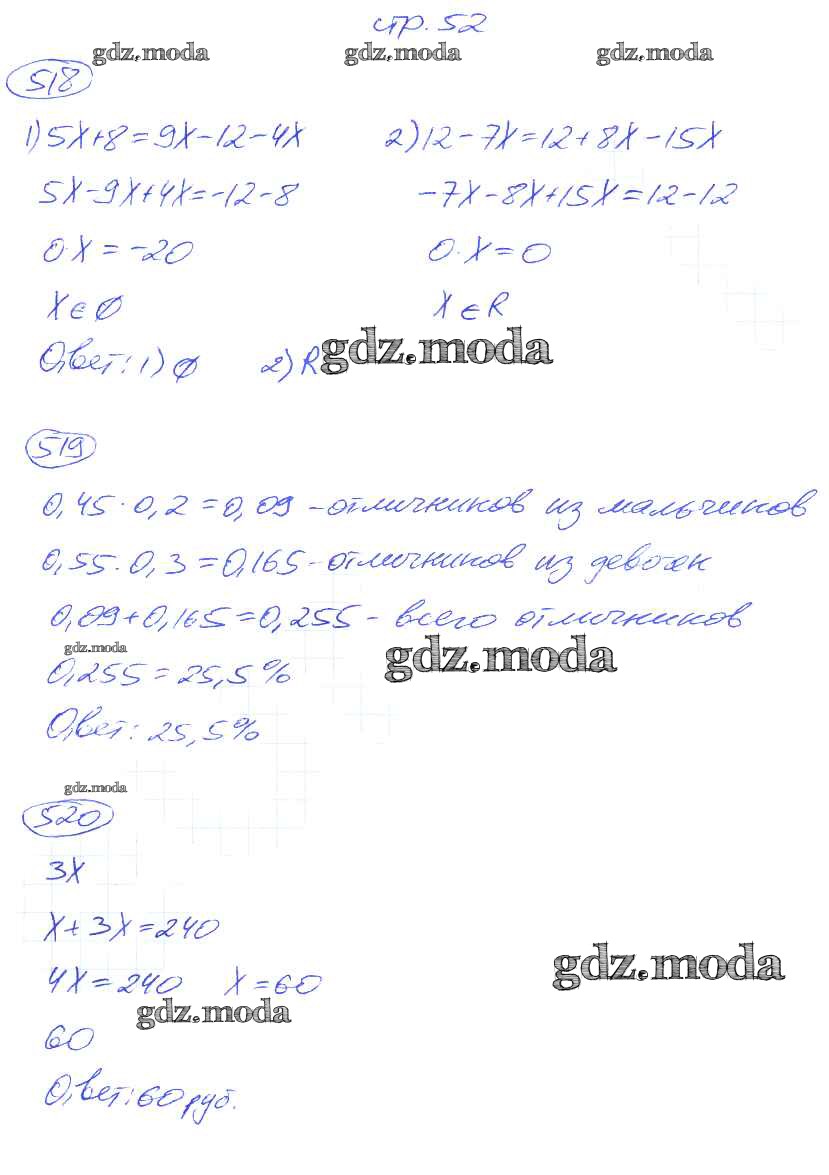 стр. 52
gdz.moda gdz.moda gdz.moda
518
1) 5x+8=9x-12-4x 2) 12-7x=12+8x-15x
5x-9x+4x=-12-8 -7x-8x+15x=12-12
0·x=-20 0·x=0
x∈∅ x∈R
Ответ: 1) ∅ 2) R gdz.moda
519
0,45·0,2=0,09-отличников из мальчиков
0,55·0,3=0,165-отличников из девочек
0,09+0,165=0,255-всего отличников
gdz.moda gdz.moda
0,255=25,5%
Ответ: 25,5%
gdz.moda
520
3x
x+3x=240
gdz.moda
4x=240 x=60
gdz.moda
60
Ответ: 60 руб.